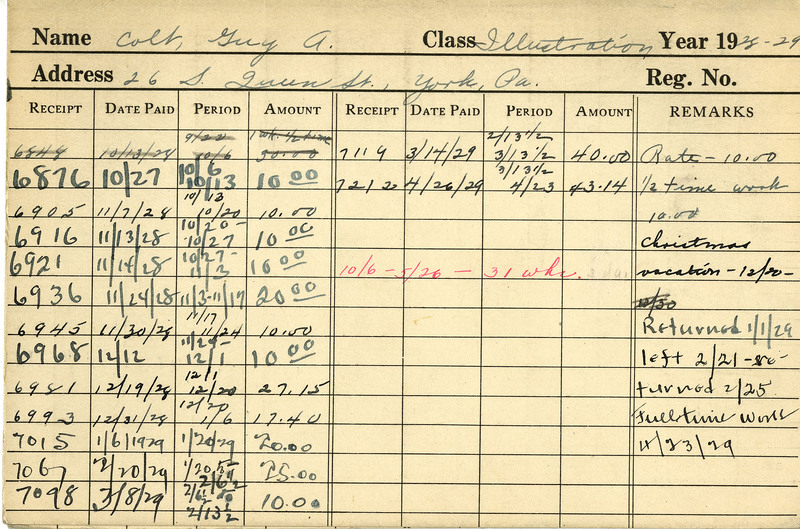 Name Colt, Guy A. Class Illustration Year 1928-29
Address 26 S. Queen St., York, Pa. Reg. No.
RECEIPT DATE PAID PERIOD AMOUNT RECEIPT DATE PAID PERIOD AMOUNT REMARKS
9/22 1 wk. 1/2 time 2/13 1/2
6848 10/13/28 10/6 30.00 7119 3/14/29 3/13 1/2 40.00 Rate - 10.00
10/6 3/13 1/2
6876 10/27 10/13 10.00 7212 4/26/29 4/23 43.14 1/2 time work
10/13
6905 11/7/28 10/20 10.00 10.00
10/20-
6916 11/13/28 10/27 10.00 Christmas
10/27-
6921 11/14/28 11/3 10.00 10/6 - 5/26 - 31 wks. vacation - 12/20-
6936 11/24/28 11/3-11/17 20.00 12/30
11/17
6945 11/30/28 11/24 10.00 Returned 1/1/29
11/24-
6968 12/12 12/1 10.00 left 2/21 - re-
12/1
6981 12/19/28 12/20 27.15 turned 2/25
12/20
6993 12/31/28 1/6 17.40 Full time work
7015 1/6/1929 1/20/29 20.00 4/23/29
1/20
7067 2/20/29 2/6 1/2 25.00
2/6 1/2 to
7098 3/8/29 2/13 1/2 10.00